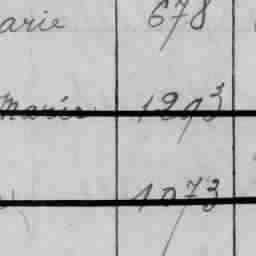 arie 678
Marie 1293
1073